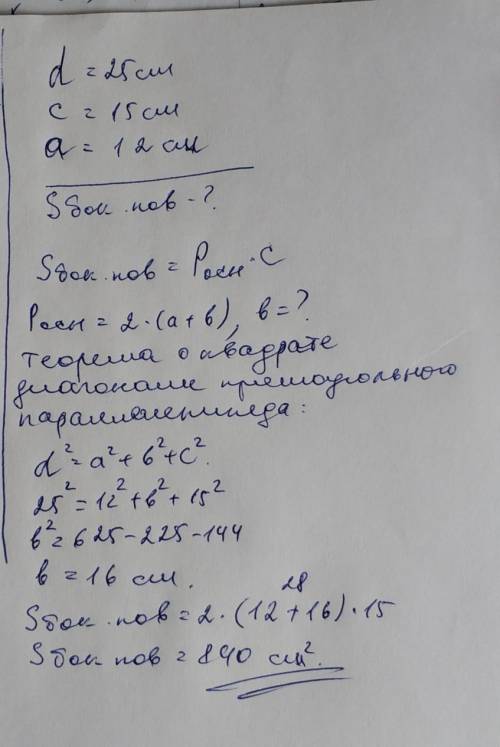 d = 25 см
c = 15 см
a = 12 см
Sбок.пов - ?
Sбок.пов = Pосн · C
Pосн = 2·(a+в), в = ?
теорема о квадрате
диагонали прямоугольного
параллелепипеда:
d² = a² + в² + c².
25² = 12² + в² + 15²
в² = 625 - 225 - 144
в = 16 см.
28
Sбок.пов = 2·(12+16)·15
Sбок пов = 840 см².